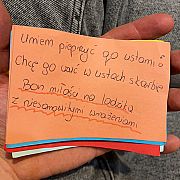 Umiem pieprzyć go ustami
Chcę go wziąć w ustach skarbie
Bon miłości na lodzika
z niesamowitymi wrażeniami